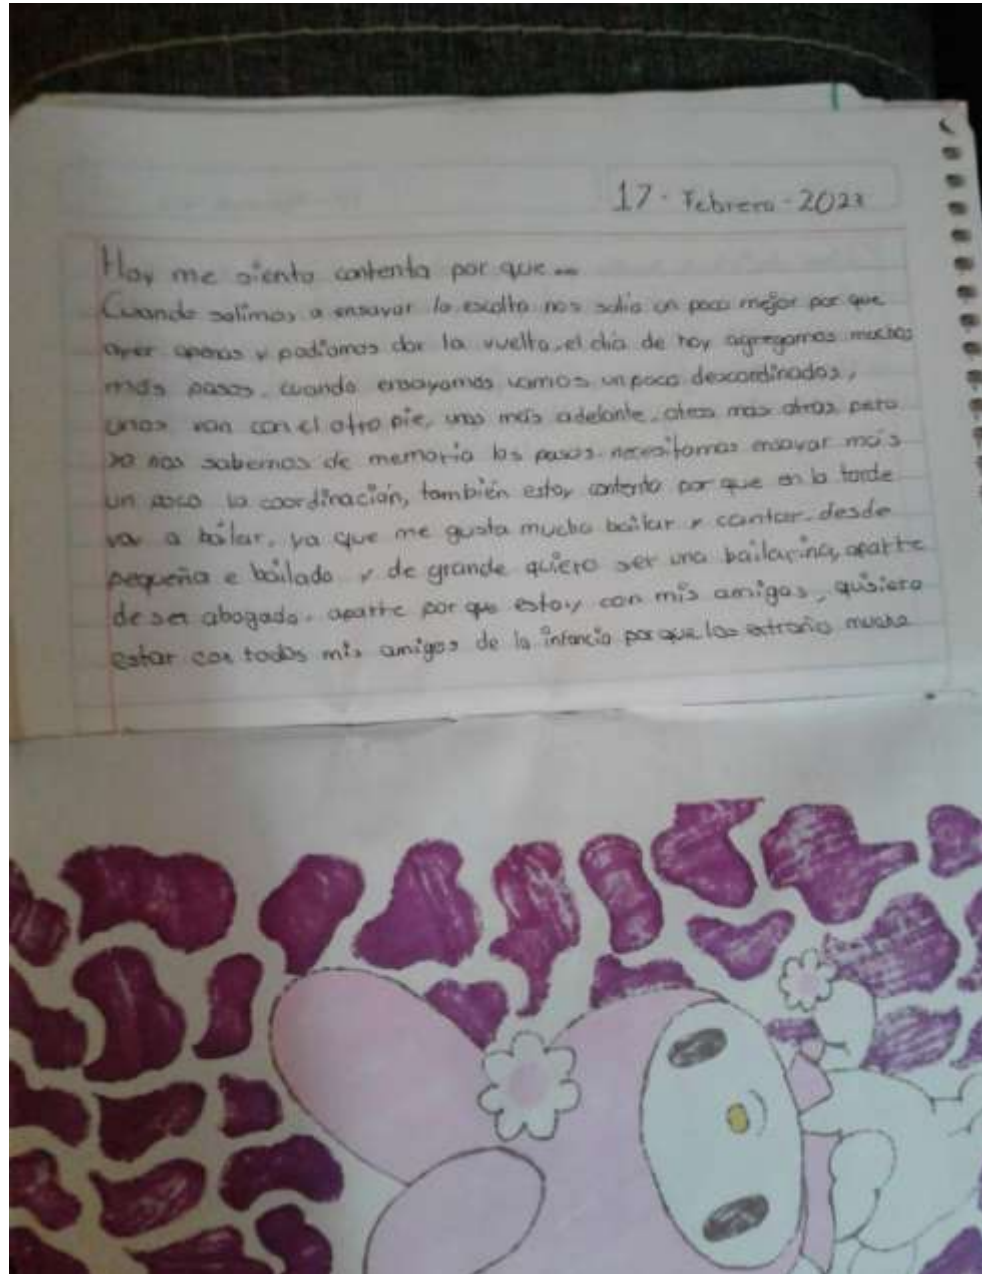 17 - Febrero - 2023
Hoy me siento contenta por que...
Cuando salimos a ensayar la escolta nos salio un poco mejor por que
ayer apenas y podíamos dar la vuelta, el día de hoy agregamos muchos
más pasos, cuando ensayamos vamos un poco descordinados,
unos van con el otro pie, unos más adelante, otros más atras pero
ya nos sabemos de memoria los pasos, necesitamos ensayar más
un poco la coordinación, también estoy contenta por que en la tarde
voy a bailar, ya que me gusta mucho bailar y cantar, desde
pequeña e bailado y de grande quiero ser una bailarina, aparte
de ser abogada, aparte por que estoy con mis amigas, quisiera
estar con todos mis amigos de la infancia porque los extraño mucho